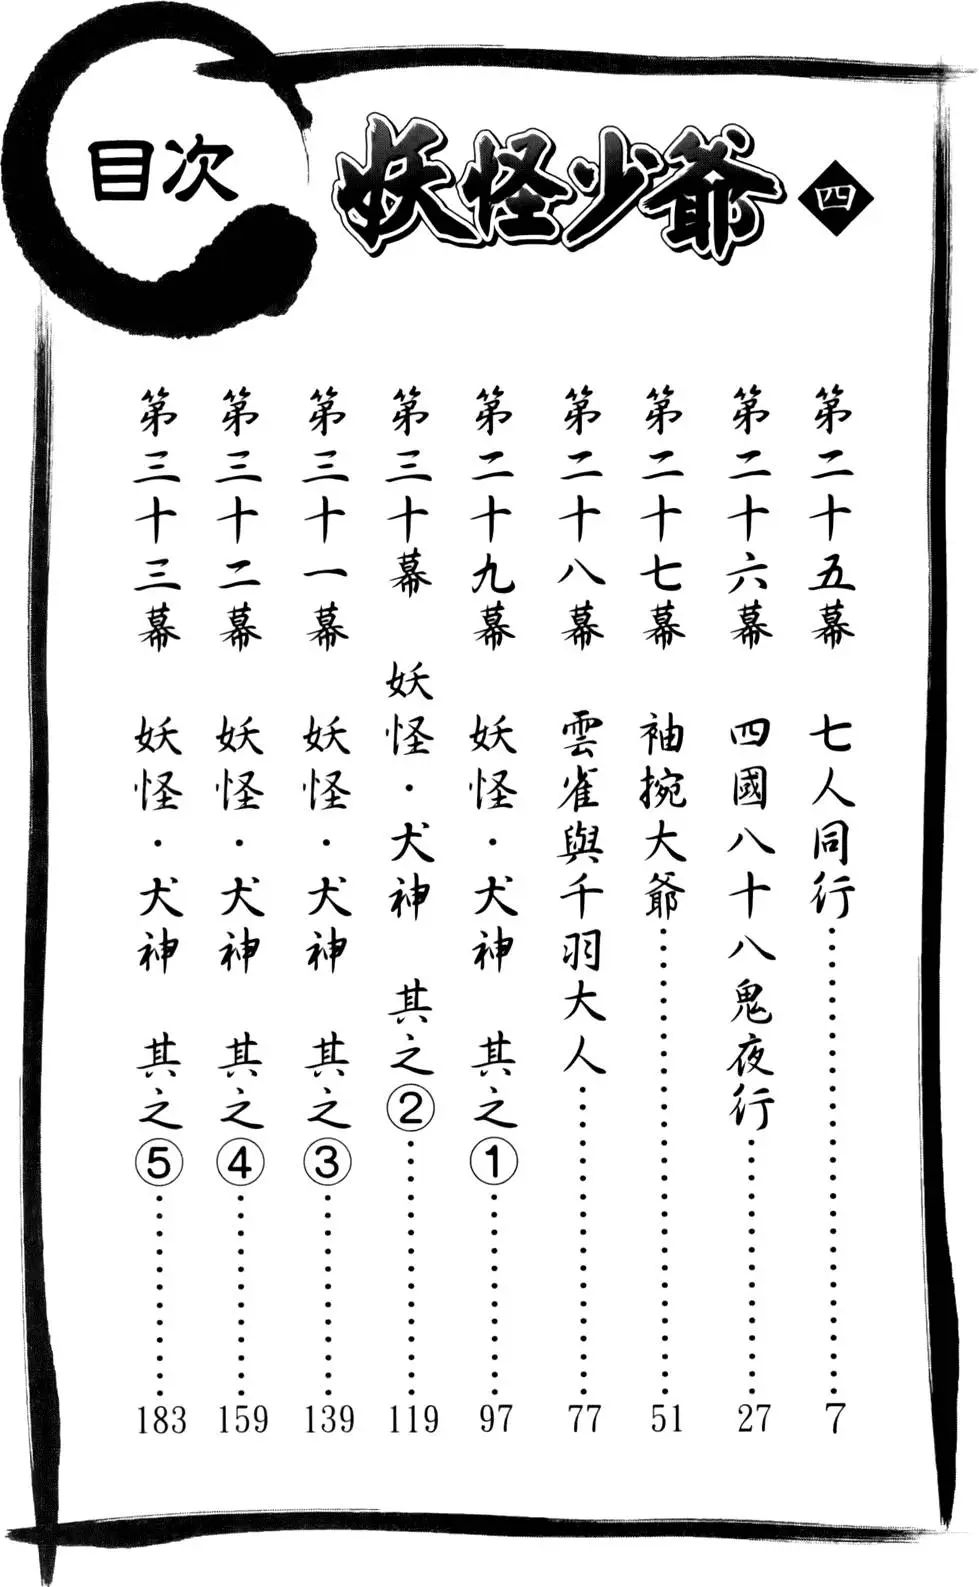 目次
妖怪少爺 四
第二十五幕 七人同行……7
第二十六幕 四國八十八鬼夜行……27
第二十七幕 袖捥大爺……51
第二十八幕 雲雀與千羽大人……77
第二十九幕 妖怪·犬神 其之①……97
第三十幕 妖怪·犬神 其之②……119
第三十一幕 妖怪·犬神 其之③……139
第三十二幕 妖怪·犬神 其之④……159
第三十三幕 妖怪·犬神 其之⑤……183